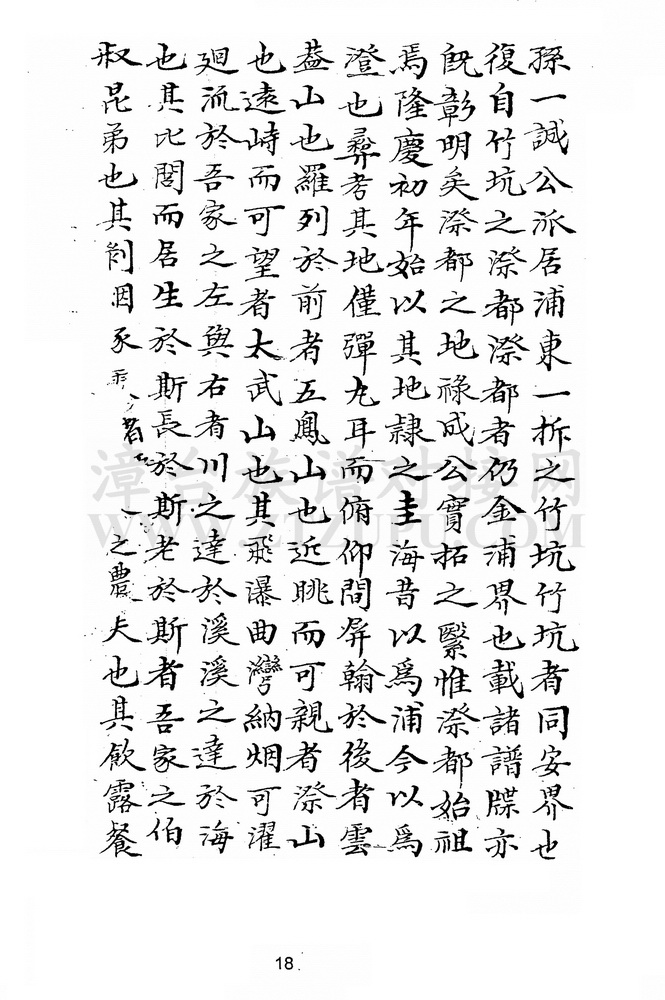 孫一誠公派居浦東一拆之竹坑竹坑者同安界也
復自竹坑之漈都漈都者仍金浦界也載諸譜牒亦
既彰明矣漈都之地祿成公實拓之繄惟漈都始祖
焉隆慶初年始以其地隷之圭海昔以爲浦今以爲
澄也彛考其地僅彈丸耳而俯仰間屏翰於後者雲
葢山也羅列於前者五鳳山也近眺而可親者漈山
也遠峙而可望者太武山也其飛瀑曲灣納烟可濯
廻流於吾家之左與右者川之達於溪溪之達於海
也其比閭而居生於斯長於斯老於斯者吾家之伯
叔昆弟也其 者 之農夫也其飲露餐
漳台族谱对接网
WWW.ZTZUPU.COM
18